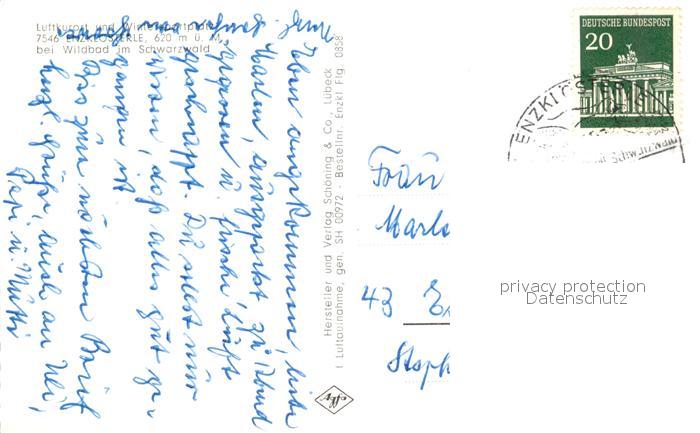 Luftkurort und Wintersportplatz
7546 ENZKLÖSTERLE, 620 m ü. M.
bei Wildbad im Schwarzwald
angekommen, liebe
ausgepackt, zu Abend
gegessen u. frische Luft
geschnappt. Du sollst nur
wissen, daß alles gut ge-
gangen ist.
Bis zum nächsten Brief
herzl. Grüße, auch an Uli,
Papi u. Mutti
Hersteller und Verlag Schöning & Co., Lübeck
Luftaufnahme, gen. SH 00972 - Bestellnr. Enzkl Flg. 0858
DEUTSCHE BUNDESPOST
20
ENZKLÖSTERLE
Schwarzwald
Frau
43
privacy protection
Datenschutz